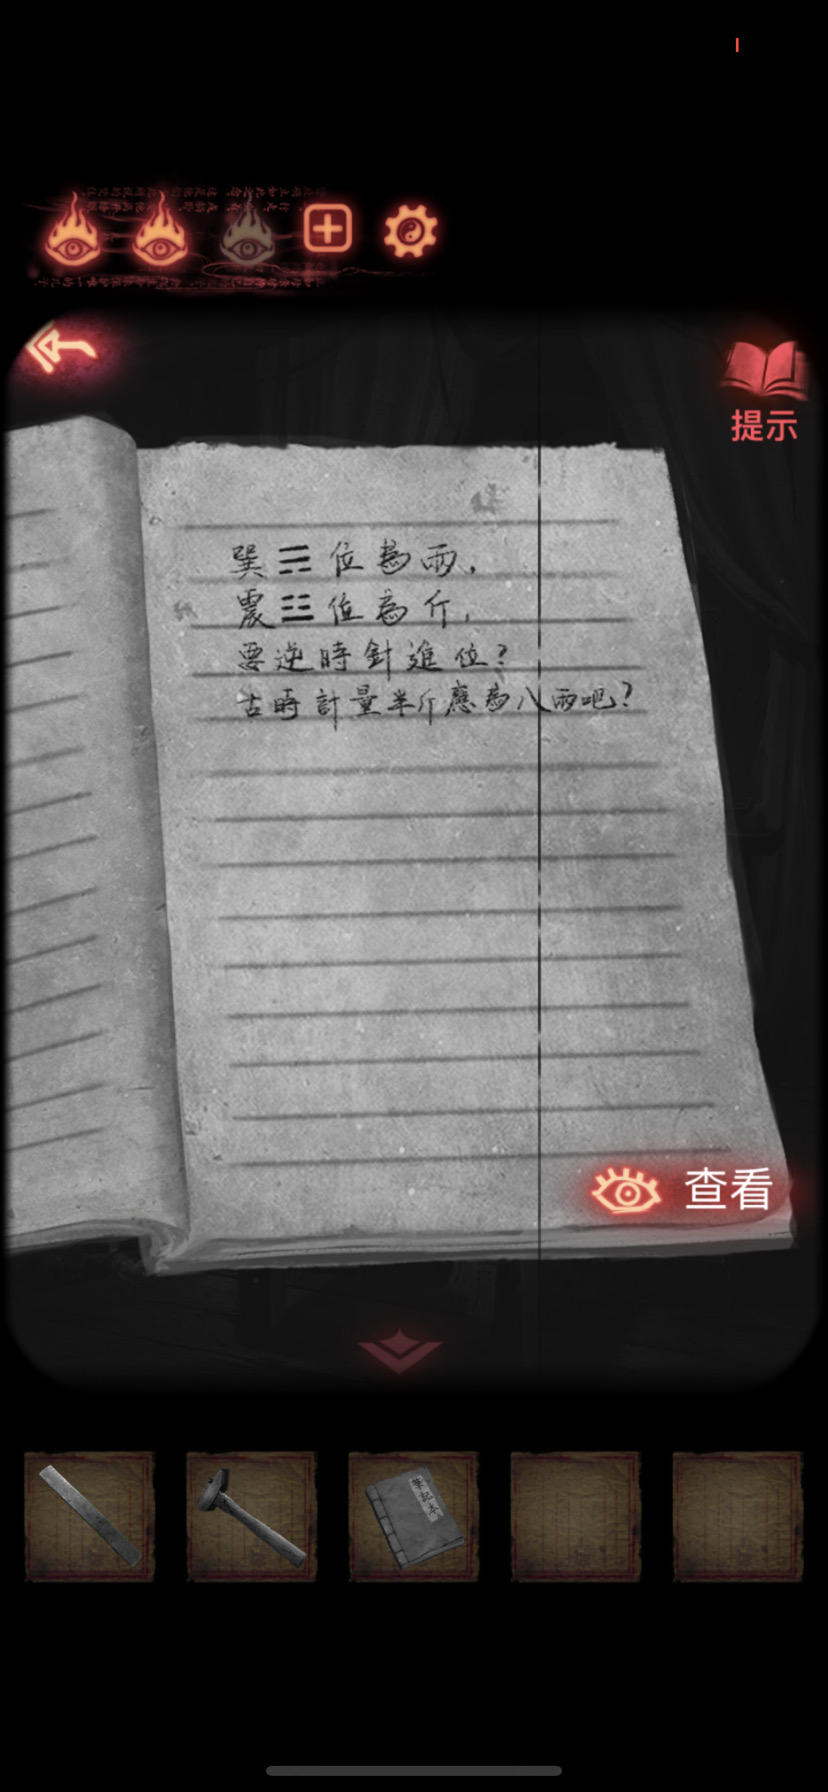 提示
巽☴位為兩，
震☳位為斤，
要逆時針進位？
古時計量半斤應為八兩吧？
查看
筆記本